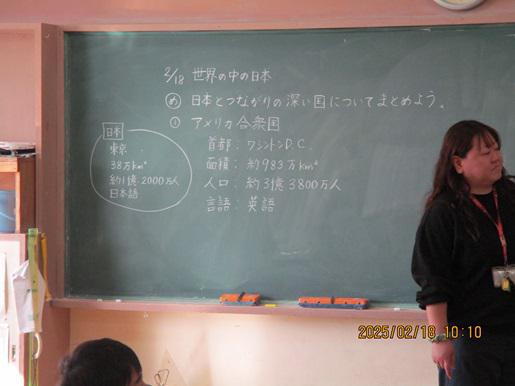 2/18 世界の中の日本
め 日本とつながりの深い国についてまとめよう。
① アメリカ合衆国
首都：ワシントンD.C.
面積：約983万km²
人口：約3億3800万人
言語：英語
日本
東京
38万km²
約1億2000万人
日本語
2025/02/18 10:10